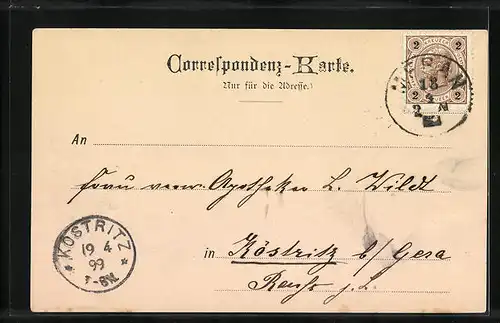 2 2
Correspondenz-Karte.
(Nur für die Adresse.)
MERAN
18
4
2 2
An
Frau verw. Apotheker L. Wildt
in Köstritz b/ Gera
Reuss j. L.
* KÖSTRITZ *
19 4
99
7-8N